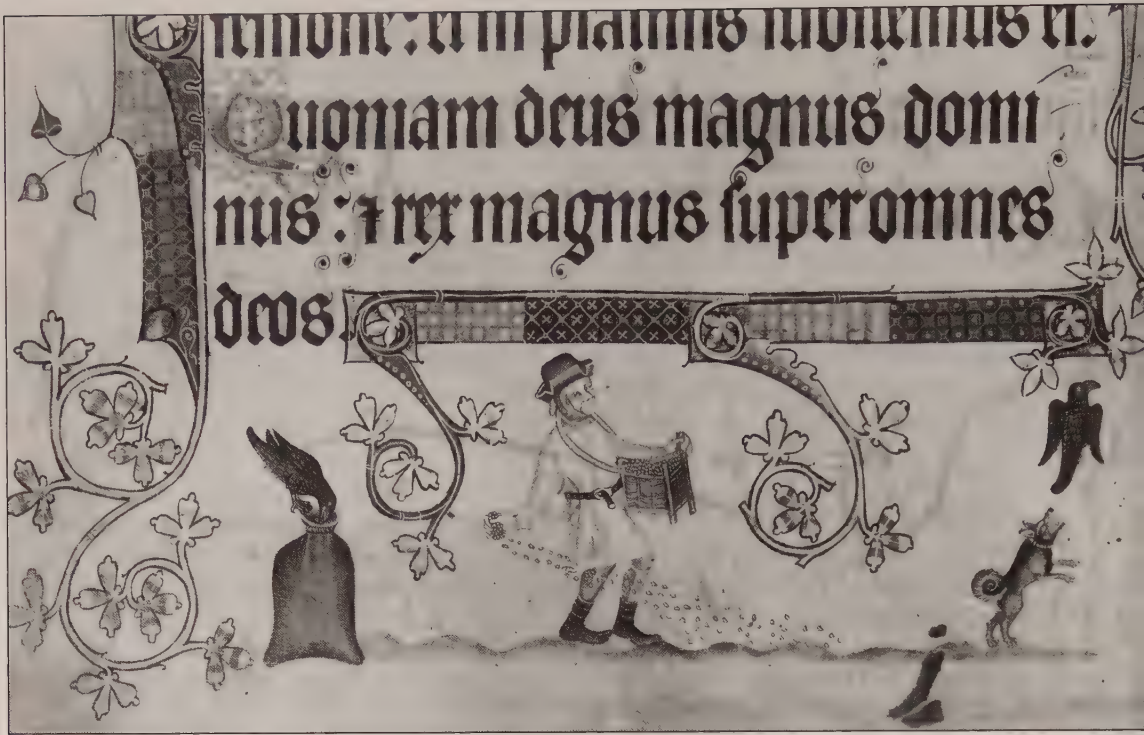 : et in psalmis iubilemus ei.
Quoniam deus magnus domi
nus : ⁊ rex magnus ſuper omnes
deos.